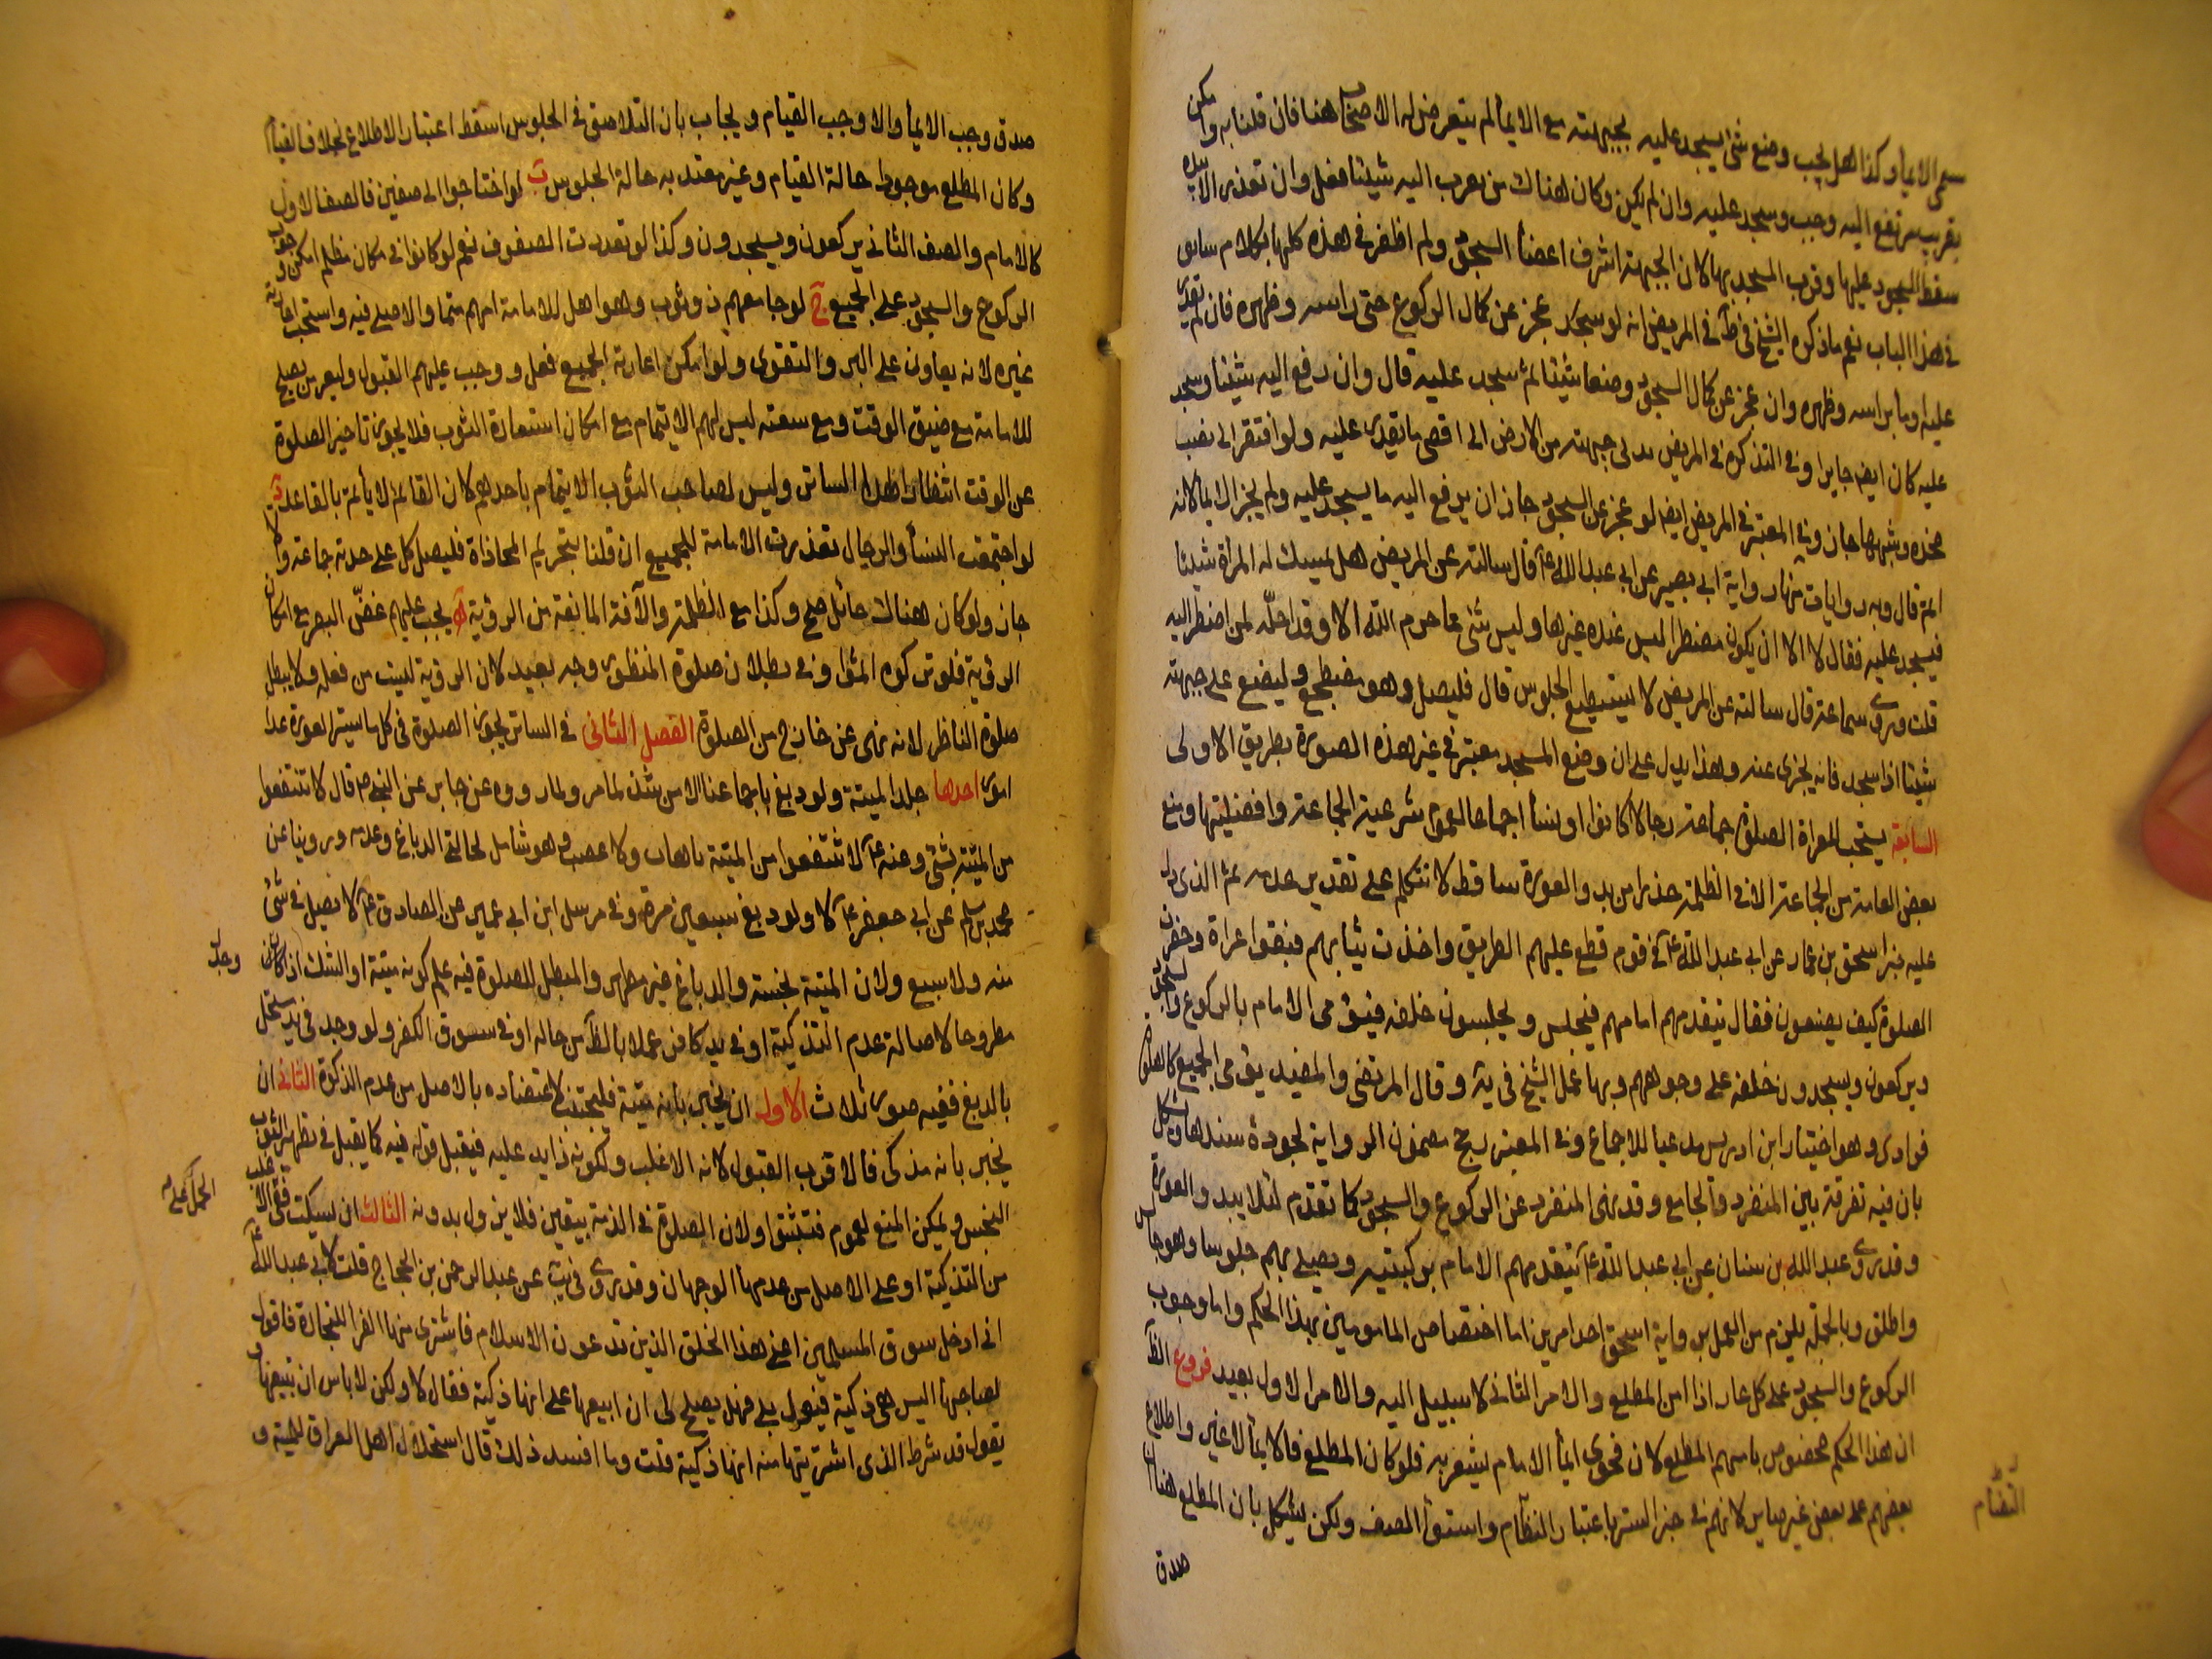 سمى الايمأ وكذا هل يجب وضع شئ يسجد عليه بجبهته مع الايمأ لم يتعرض له الاصحاب هنا فان قلنا به وامكن
بقريب مرتفع اليه وجب وسجد عليه وان لم يكن وكان هناك من يقرب اليه شيئا فعل وان تعذر الا بيده
سقط السجود عليها وقرب المسجد بها لان الجبهة اشرف اعضأ السجود ولم اظفر في هذه كلها بكلام سابق
في هذا الباب نعم ما ذكره الشيخ في ط في المريض انه لو عجز عن كمال الركوع حنى راسه وظهره فان لم يقدر
عليه اومأ براسه وظهره وان عجز عن كمال السجود وضع شيئا ثم سجد عليه قال وان رفع اليه شيئا وسجد
عليه كان ايض جايزا وفي التذكرة في المريض يدنى جبهته من الارض الى اقصى ما يقدر عليه ولو افتقر الى نصب
مخدة وشبهها جاز وفي المعتبر في المريض ايض لو عجز عن السجود جاز ان يرفع اليه ما يسجد عليه ولم يجز الايمأ لانه
اتم قال وبه روايات منها رواية ابي بصير عن ابي عبد الله ع قال سالته عن المريض هل تمسك له المرأة شيئا
فيسجد عليه فقال لا الا ان يكون مضطرا ليس عنده غيرها وليس شئ مما حرم الله الا وقد احله لمن اضطر اليه
قلت وروى سماعة قال سالته عن المريض لا يستطيع الجلوس قال فليصل وهو مضطجع وليضع على جبهته
شيئا اذا سجد فانه يجزى عنه وهذا يدل على ان وضع المسجد معتبر في غير هذه الصورة بطريق الاولى
السابعة يستحب للعراة الصلوة جماعة رجالا كانوا او نسأ اجماعا لعموم شرعية الجماعة وافضليتها ومنع
بعض العامة من الجماعة الا في الظلمة حذرا من بدو العورة ساقط لانا نتكلم على تقدير عدمه ثم الذي دل
عليه خبر اسحق بن عمار عن ابي عبد الله ع في قوم قطع عليهم الطريق واخذت ثيابهم فبقوا عراة وحضرت
الصلوة كيف يصنعون فقال يتقدمهم امامهم فيجلس ويجلسون خلفه فيومى الامام بالركوع والسجود
ويركعون ويسجدون خلفه على وجوههم وبها عمل الشيخ في ية وقال المرتضى والمفيد يومى الجميع كالصلوة
فرادى وهو اختيار ابن ادريس مدعيا للاجماع وفي المعتبر رجح مضمون الرواية لجودة سندها ويشكل
بان فيه تفرقة بين المنفرد والجامع وقد نهى المنفرد عن الركوع والسجود كما تقدم لئلا يبدو العورة
وقد روى عبد الله بن سنان عن ابي عبد الله ع يتقدمهم الامام بركبتيه ويصلى بهم جلوسا وهو جالس
واطلق وبالجملة يلزم من العمل برواية اسحق احد امرين اما اختصاص المامومين بهذا الحكم واما وجوب
الركوع والسجود على كل عار اذا امن المطلع والامر الثاني لا سبيل اليه والامر الاول بعيد فروع الظ
ان هذا الحكم مخصوص بامنهم المطلع لان فحوى ايمأ الامام يشعر به فلو كان المطلع فالايمأ لا غير واطلاع
بعضهم على بعض غير ضاير لانهم في حيز الستر باعتبار النظام واستوأ الصف ولكن يشكل بان المطلع هنا ان
التضام
صدق
صدق وجب الايمأ والا وجب القيام ويجاب بان التلاصق في الجلوس اسقط اعتبار الاطلاع بخلاف القيام
وكان المطلع موجود حالة القيام وغير معتد به حالة الجلوس ب لو احتاجوا الى صفين فالصف الاول
كالامام والصف الثاني يركعون ويسجدون وكذا لو تعددت الصفوف نعم لو كانوا في مكان مظلم امكن وجوب
الركوع والسجود على الجميع ج لو جامعهم ذو ثوب وهو اهل للامامة امهم حتما والا صلى فيه واستحب اعارة
غيره لانه يعاون على البر والتقوى ولو امكن اعارته الجميع فعل ووجب عليهم القبول وليعر من يصلح
للامامة مع ضيق الوقت ومع سعته ليس لهم الايتمام مع امكان استعارة الثوب فلا يجوز تاخير الصلوة
عن الوقت انتظارا لهذا الساتر وليس لصاحب الثوب الايتمام باحدهم كان القائم لا يأتم بالقاعد د
لو اجتمعت النسأ والرجال تعذرت الامامة للجميع ان قلنا بتحريم المحاذاة فليصل كل على حدته جماعة والا
جاز ولو كان هناك حائل صح وكذا مع الظلمة والآفة المانعة من الرؤية ه يجب عليهم غض البصر مع امكان
الرؤية فلو تركوه اثموا وفي بطلان صلوة المنظور وجه بعيد لان الرؤية ليست من فعله ولا يبطل
صلوة الناظر لانه نهى عن خارج من الصلوة الفصل الثاني في الساتر يجوز الصلوة في كل ما يستر العورة عدا
امور احدها جلد الميتة ولو دبغ باجماعنا الا من شذ لما مر ولما رووه عن جابر عن النبي ص قال لا تنتفعوا
من الميتة بشئ وعنه ع لا تنتفعوا من الميتة باهاب ولا عصب هو شامل لحالتي الدباغ وعدمه وروينا عن
محمد بن مسلم عن ابي جعفر ع لا ولو دبغ سبعين مرة وفي مرسل ابن ابي عمير عن الصادق ع لا يصل في شئ
منه ولا شسع ولان الميتة نجسة والدباغ غير مطهر والمبطل للصلوة فيه علم كونه ميتة او الشك اذا كان
مطروحا لاصالة عدم التذكية او في يد كافر عملا بالظ من حاله او في سوق الكفر ولو وجد في يد مستحل
بالدبغ ففيه صور ثلاث الاول ان يخبر بانه ميتة فليجتنب لاعتضاده بالاصل من عدم الذكوة الثاني ان
يخبر بانه مذكى فالاقرب القبول لانه الاغلب ولكونه ذا يد عليه فيقبل قوله فيه كما يقبل في تطهير الثوب
النجس ويمكن المنع لعموم فتثبتوا ولان الصلوة في الذمة بيقين فلا يزول بدونه الثالث ان يسكت ففي الاغلب
الحمل على
من التذكية او على الاصل من عدمها الوجهان وقد روى في يب عن عبد الرحمن بن الحجاج قلت لابي عبد الله ع
اني ادخل سوق المسلمين اعني هذا الخلق الذين تدعون الاسلام فاشترى منها الفرا للتجارة فاقول
لصاحبها اليس هي ذكية فيقول بلى فهل يصلح لى ان ابيعها على انها ذكية فقال لا ولكن لا باس ان تبيعها و
يقول قد شرط الذي اشتريتها منه انها ذكية قلت وما افسد ذلك قال استحلال اهل العراق للميتة و